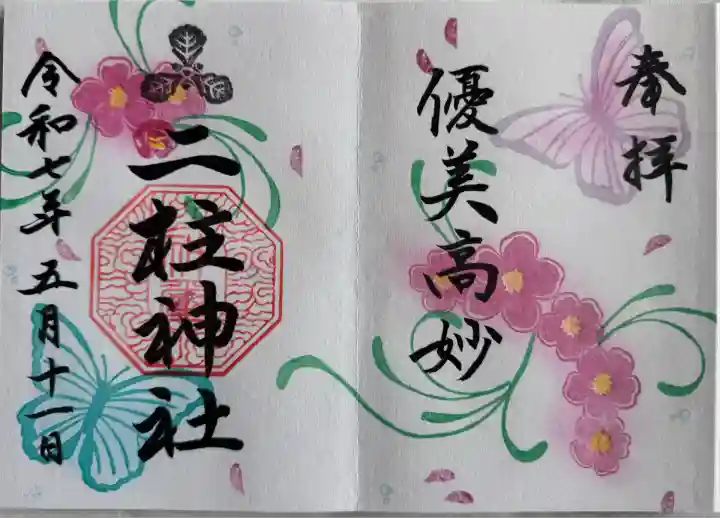 奉拝
優美高妙
二柱神社
令和七年五月十一日